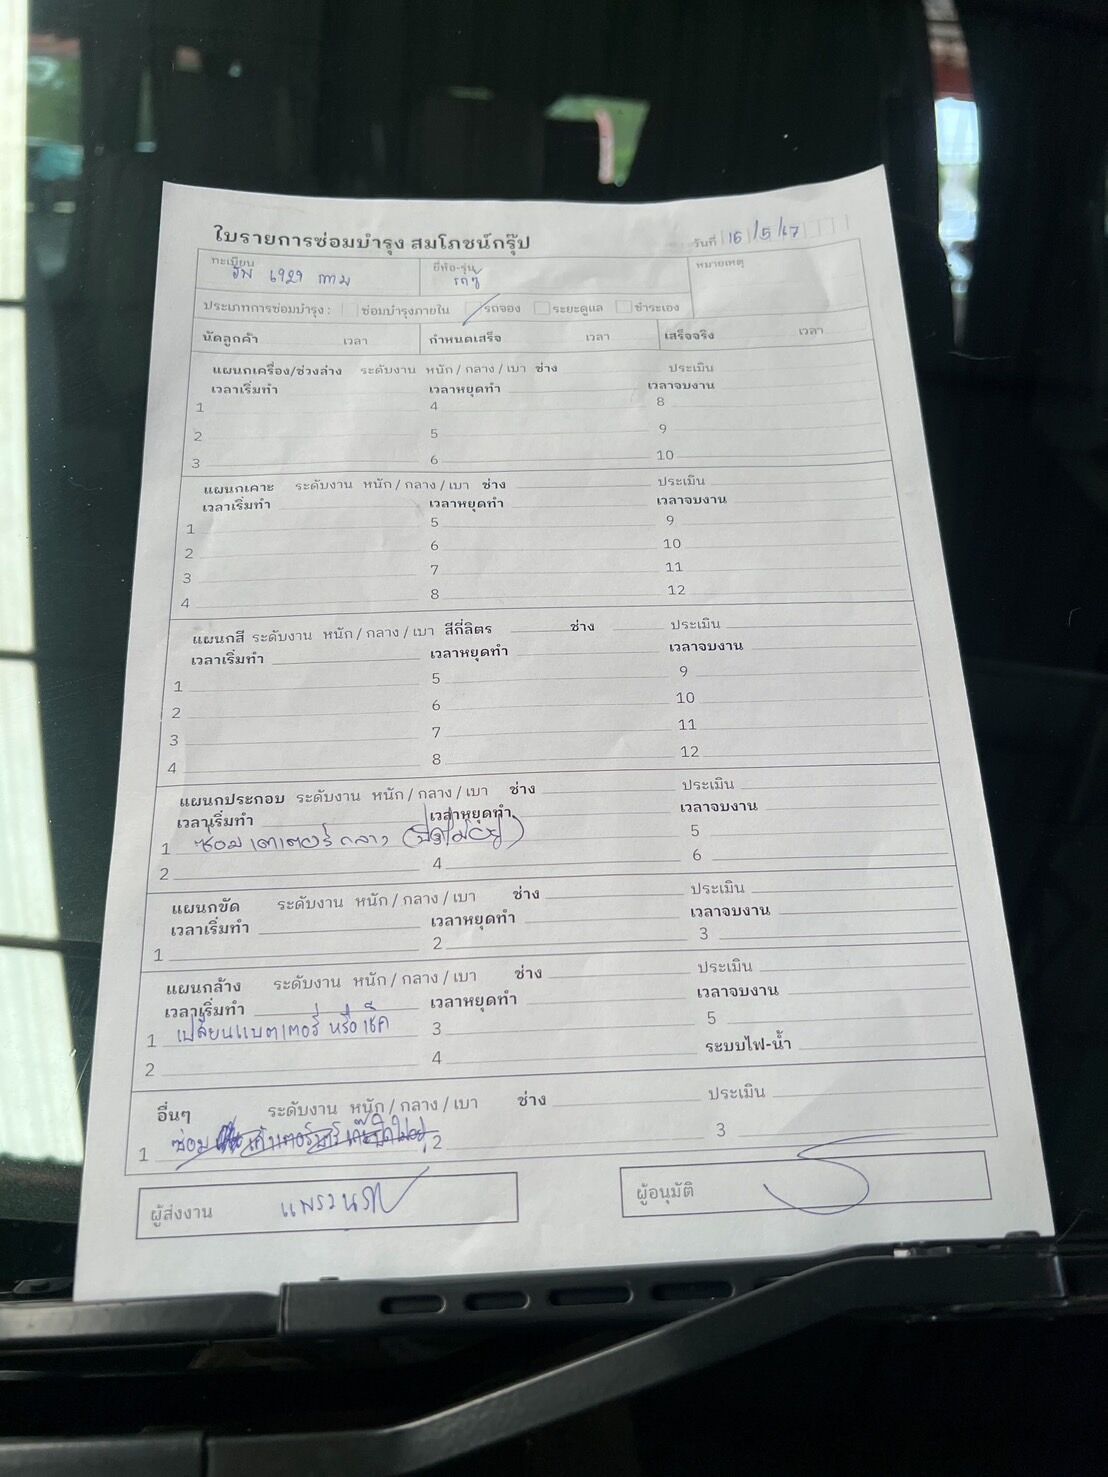 ใบรายการซ่อมบำรุง สมโภชน์กรุ๊ป
วันที่ 16/5/67
ทะเบียน ยี่ห้อ-รุ่น หมายเหตุ
ประเภทการซ่อมบำรุง: ซ่อมบำรุงภายใน รถจอง ระยะดูแล ชำระเอง
นัดลูกค้า เวลา กำหนดเสร็จ เวลา เสร็จจริง เวลา
แผนกเครื่อง/ช่วงล่าง ระดับงาน หนัก / กลาง / เบา ช่าง ประเมิน
เวลาเริ่มทำ เวลาหยุดทำ เวลาจบงาน
1 4 8
2 5 9
3 6 10
แผนกเคาะ ระดับงาน หนัก / กลาง / เบา ช่าง ประเมิน
เวลาเริ่มทำ เวลาหยุดทำ เวลาจบงาน
1 5 9
2 6 10
3 7 11
4 8 12
แผนกสี ระดับงาน หนัก / กลาง / เบา สีกี่ลิตร ช่าง ประเมิน
เวลาเริ่มทำ เวลาหยุดทำ เวลาจบงาน
1 5 9
2 6 10
3 7 11
4 8 12
แผนกประกอบ ระดับงาน หนัก / กลาง / เบา ช่าง ประเมิน
เวลาเริ่มทำ เวลาหยุดทำ เวลาจบงาน
1 ซ่อม กลาง (ปิดไม่อยู่) 5
2 4 6
แผนกขัด ระดับงาน หนัก / กลาง / เบา ช่าง ประเมิน
เวลาเริ่มทำ เวลาหยุดทำ เวลาจบงาน
1 2 3
แผนกล้าง ระดับงาน หนัก / กลาง / เบา ช่าง ประเมิน
เวลาเริ่มทำ เวลาหยุดทำ เวลาจบงาน
1 เปลี่ยนแบตเตอรี่ หรือ เช็ค 3 5
2 4 ระบบไฟ-น้ำ
อื่นๆ ระดับงาน หนัก / กลาง / เบา ช่าง ประเมิน
1 ซ่อม 2 3
ผู้ส่งงาน ผู้อนุมัติ